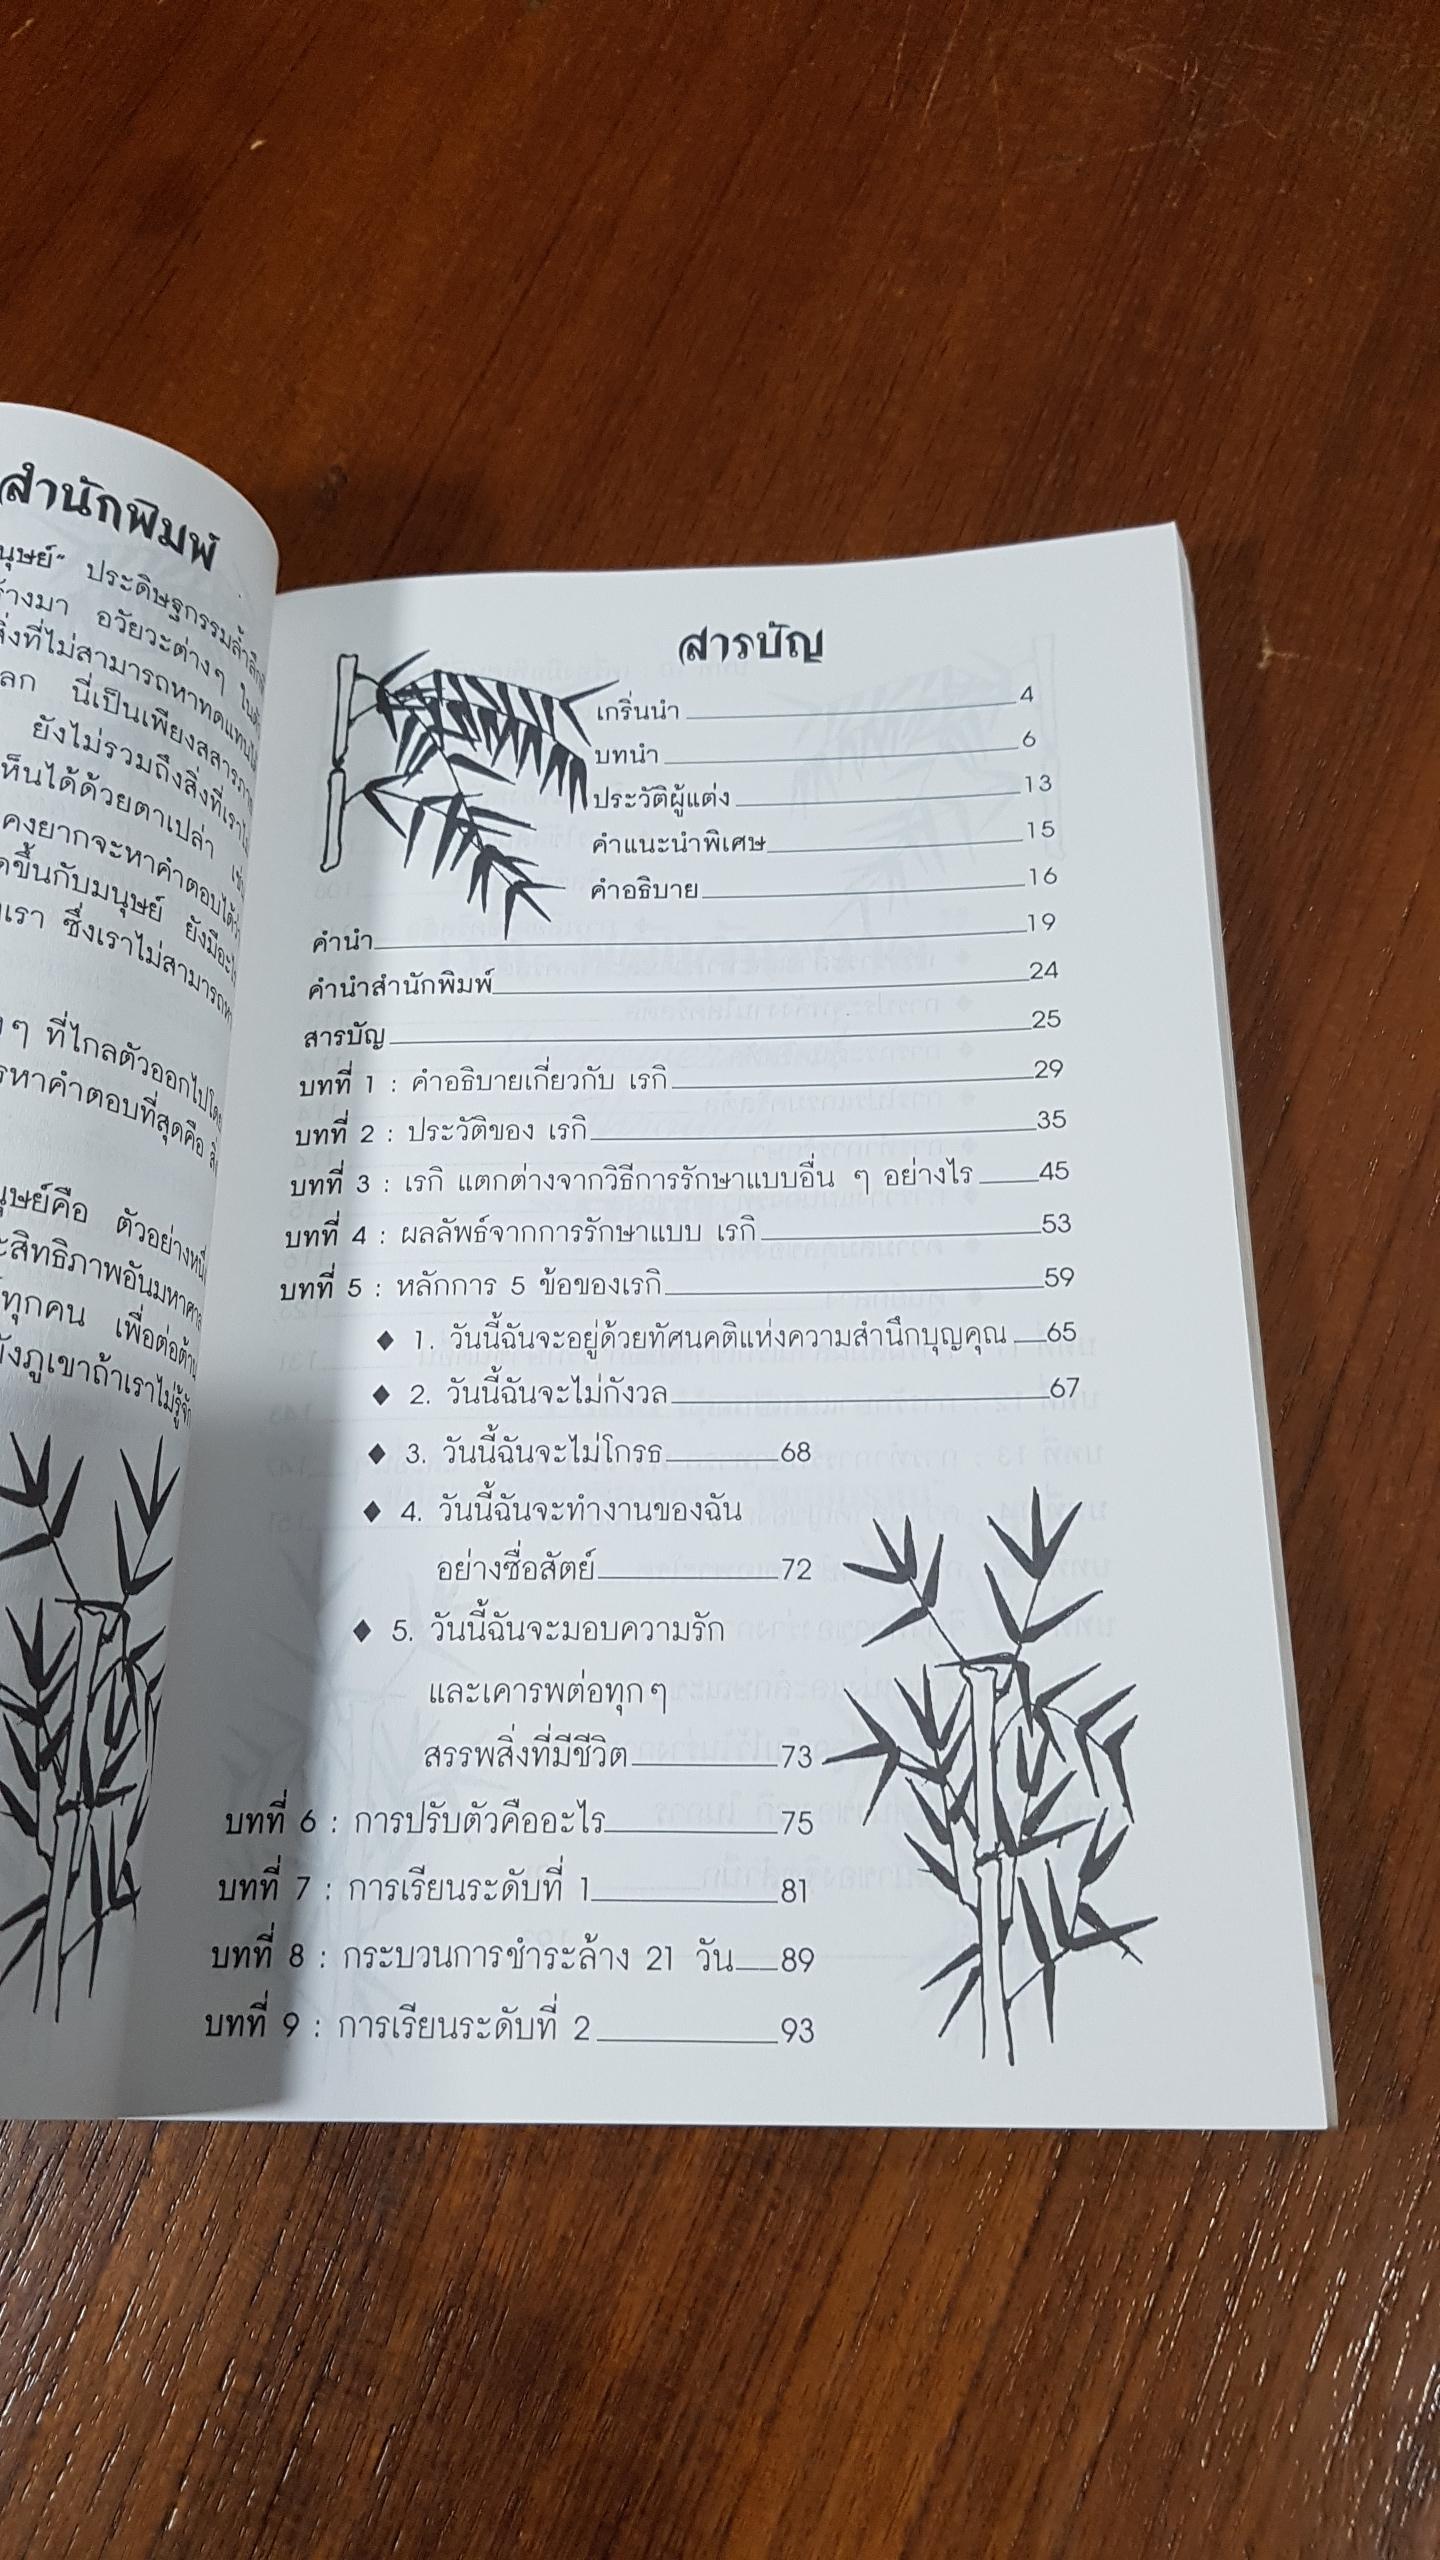 สำนักพิมพ์
ประดิษฐกรรมล้ำลึก
อวัยวะต่างๆ
สิ่งที่ไม่สามารถหาทดแทนได้
นี่เป็นเพียงสสารภาพ
ยังไม่รวมถึงสิ่งที่เรา
เห็นได้ด้วยตาเปล่า เช่น
คงยากจะหาคำตอบได้ว่า
ขึ้นกับมนุษย์ ยังมีอะไร
เรา ซึ่งเราไม่สามารถหา
ๆ ที่ไกลตัวออกไปโดย
หาคำตอบที่สุดคือ สิ่
มนุษย์คือ ตัวอย่างหนึ่ง
ประสิทธิภาพอันมหาศาล
ทุกคน เพื่อต่อต้าน
ภูเขาถ้าเราไม่รู้จัก
สารบัญ
เกริ่นนำ 4
บทนำ 6
ประวัติผู้แต่ง 13
คำแนะนำพิเศษ 15
คำอธิบาย 16
คำนำ 19
คำนำสำนักพิมพ์ 24
สารบัญ 25
บทที่ 1 : คำอธิบายเกี่ยวกับ เรกิ 29
บทที่ 2 : ประวัติของ เรกิ 35
บทที่ 3 : เรกิ แตกต่างจากวิธีการรักษาแบบอื่น ๆ อย่างไร 45
บทที่ 4 : ผลลัพธ์จากการรักษาแบบ เรกิ 53
บทที่ 5 : หลักการ 5 ข้อของเรกิ 59
◆ 1. วันนี้ฉันจะอยู่ด้วยทัศนคติแห่งความสำนึกบุญคุณ 65
◆ 2. วันนี้ฉันจะไม่กังวล 67
◆ 3. วันนี้ฉันจะไม่โกรธ 68
◆ 4. วันนี้ฉันจะทำงานของฉัน
อย่างซื่อสัตย์ 72
◆ 5. วันนี้ฉันจะมอบความรัก
และเคารพต่อทุกๆ
สรรพสิ่งที่มีชีวิต 73
บทที่ 6 : การปรับตัวคืออะไร 75
บทที่ 7 : การเรียนระดับที่ 1 81
บทที่ 8 : กระบวนการชำระล้าง 21 วัน 89
บทที่ 9 : การเรียนระดับที่ 2 93